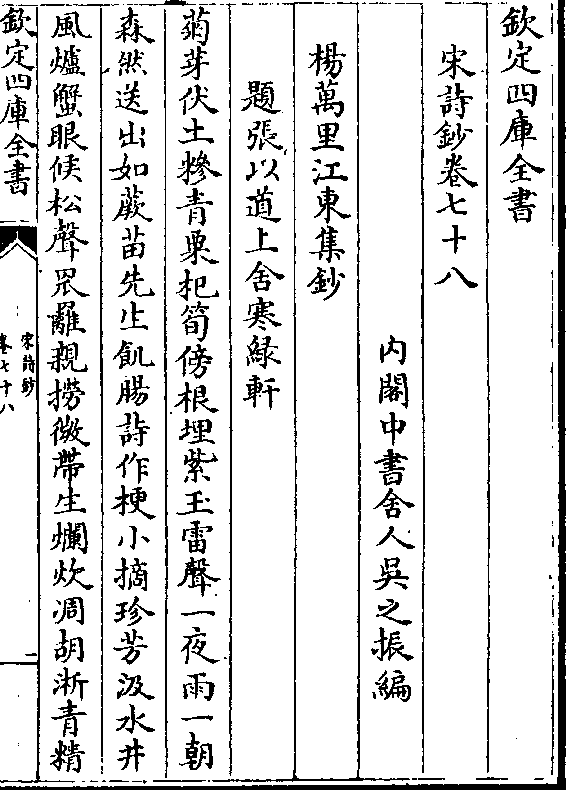 欽定四庫全書
宋詩鈔卷七十八
內閣中書舍人吳之振編
楊萬里江東集鈔
題張以道上舍寒緑軒
菊芽伏土糝青粟杞筍傍根埋紫玉雷聲一夜雨一朝
森然送出如蕨苗先生飢腸詩作梗小摘珍芳汲水井
風爐蟹眼候松聲罛䍦親撈微帶生爛炊凋胡淅青精
欽定四庫全書
宋詩鈔
卷七十八
一